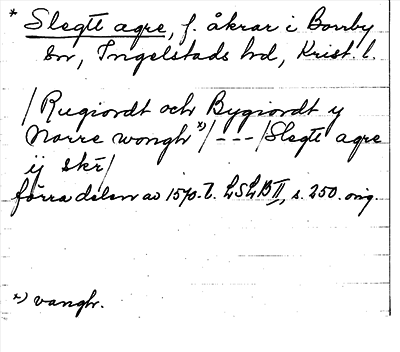 * Slegte agre, f. åkrar i Borrby
sn, Ingelstads hd, Krist. l.
/ Rugiordt och Bygiordt y
Norre wongh *) / - - - / Slegte agre
ij skr /
förra delen av 1570-t. LSLB II, s. 250. orig.
*) vangh.